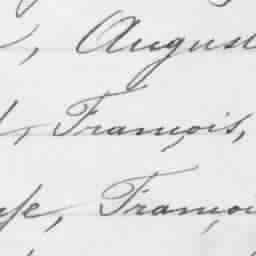 , August
, François,
, Françoi